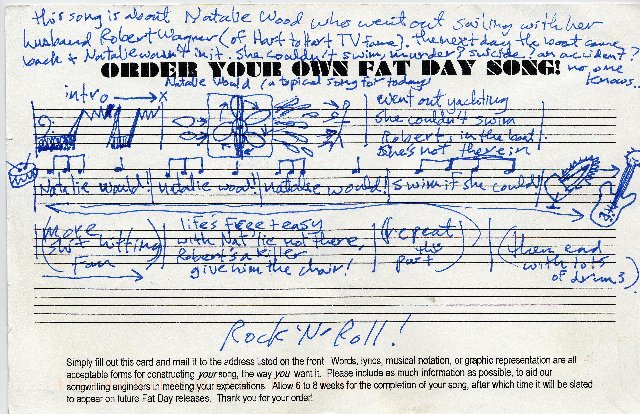 This song is about Natalie Wood who went out sailing with her
husband Robert Wagner (of Hart to Hart TV fame). the next day the boat came
back & Natalie wasn't in it. she couldn't swim, murder? suicide? an accident?
no one knows..
ORDER YOUR OWN FAT DAY SONG!
Natalie Would (a topical song for today)
intro
went out yachting
she couldn't swim
Robert, in the boat
she's not there in
Natalie would! natalie woul! natalie would! swim if she could!
(more shit hitting Fan)
life's free + easy
with Nat'lie not there,
Robert's a killer
give him the chair!
(repeat this part)
(then end with lots of drums)
Rock 'N' Roll!
Simply fill out this card and mail it to the address listed on the front. Words, lyrics, musical notation, or graphic representation are all
acceptable forms for constructing your song, the way you want it. Please include as much information as possible, to aid our
songwriting engineers in meeting your expectations. Allow 6 to 8 weeks for the completion of your song, after which time it will be slated
to appear on future Fat Day releases. Thank you for your order!